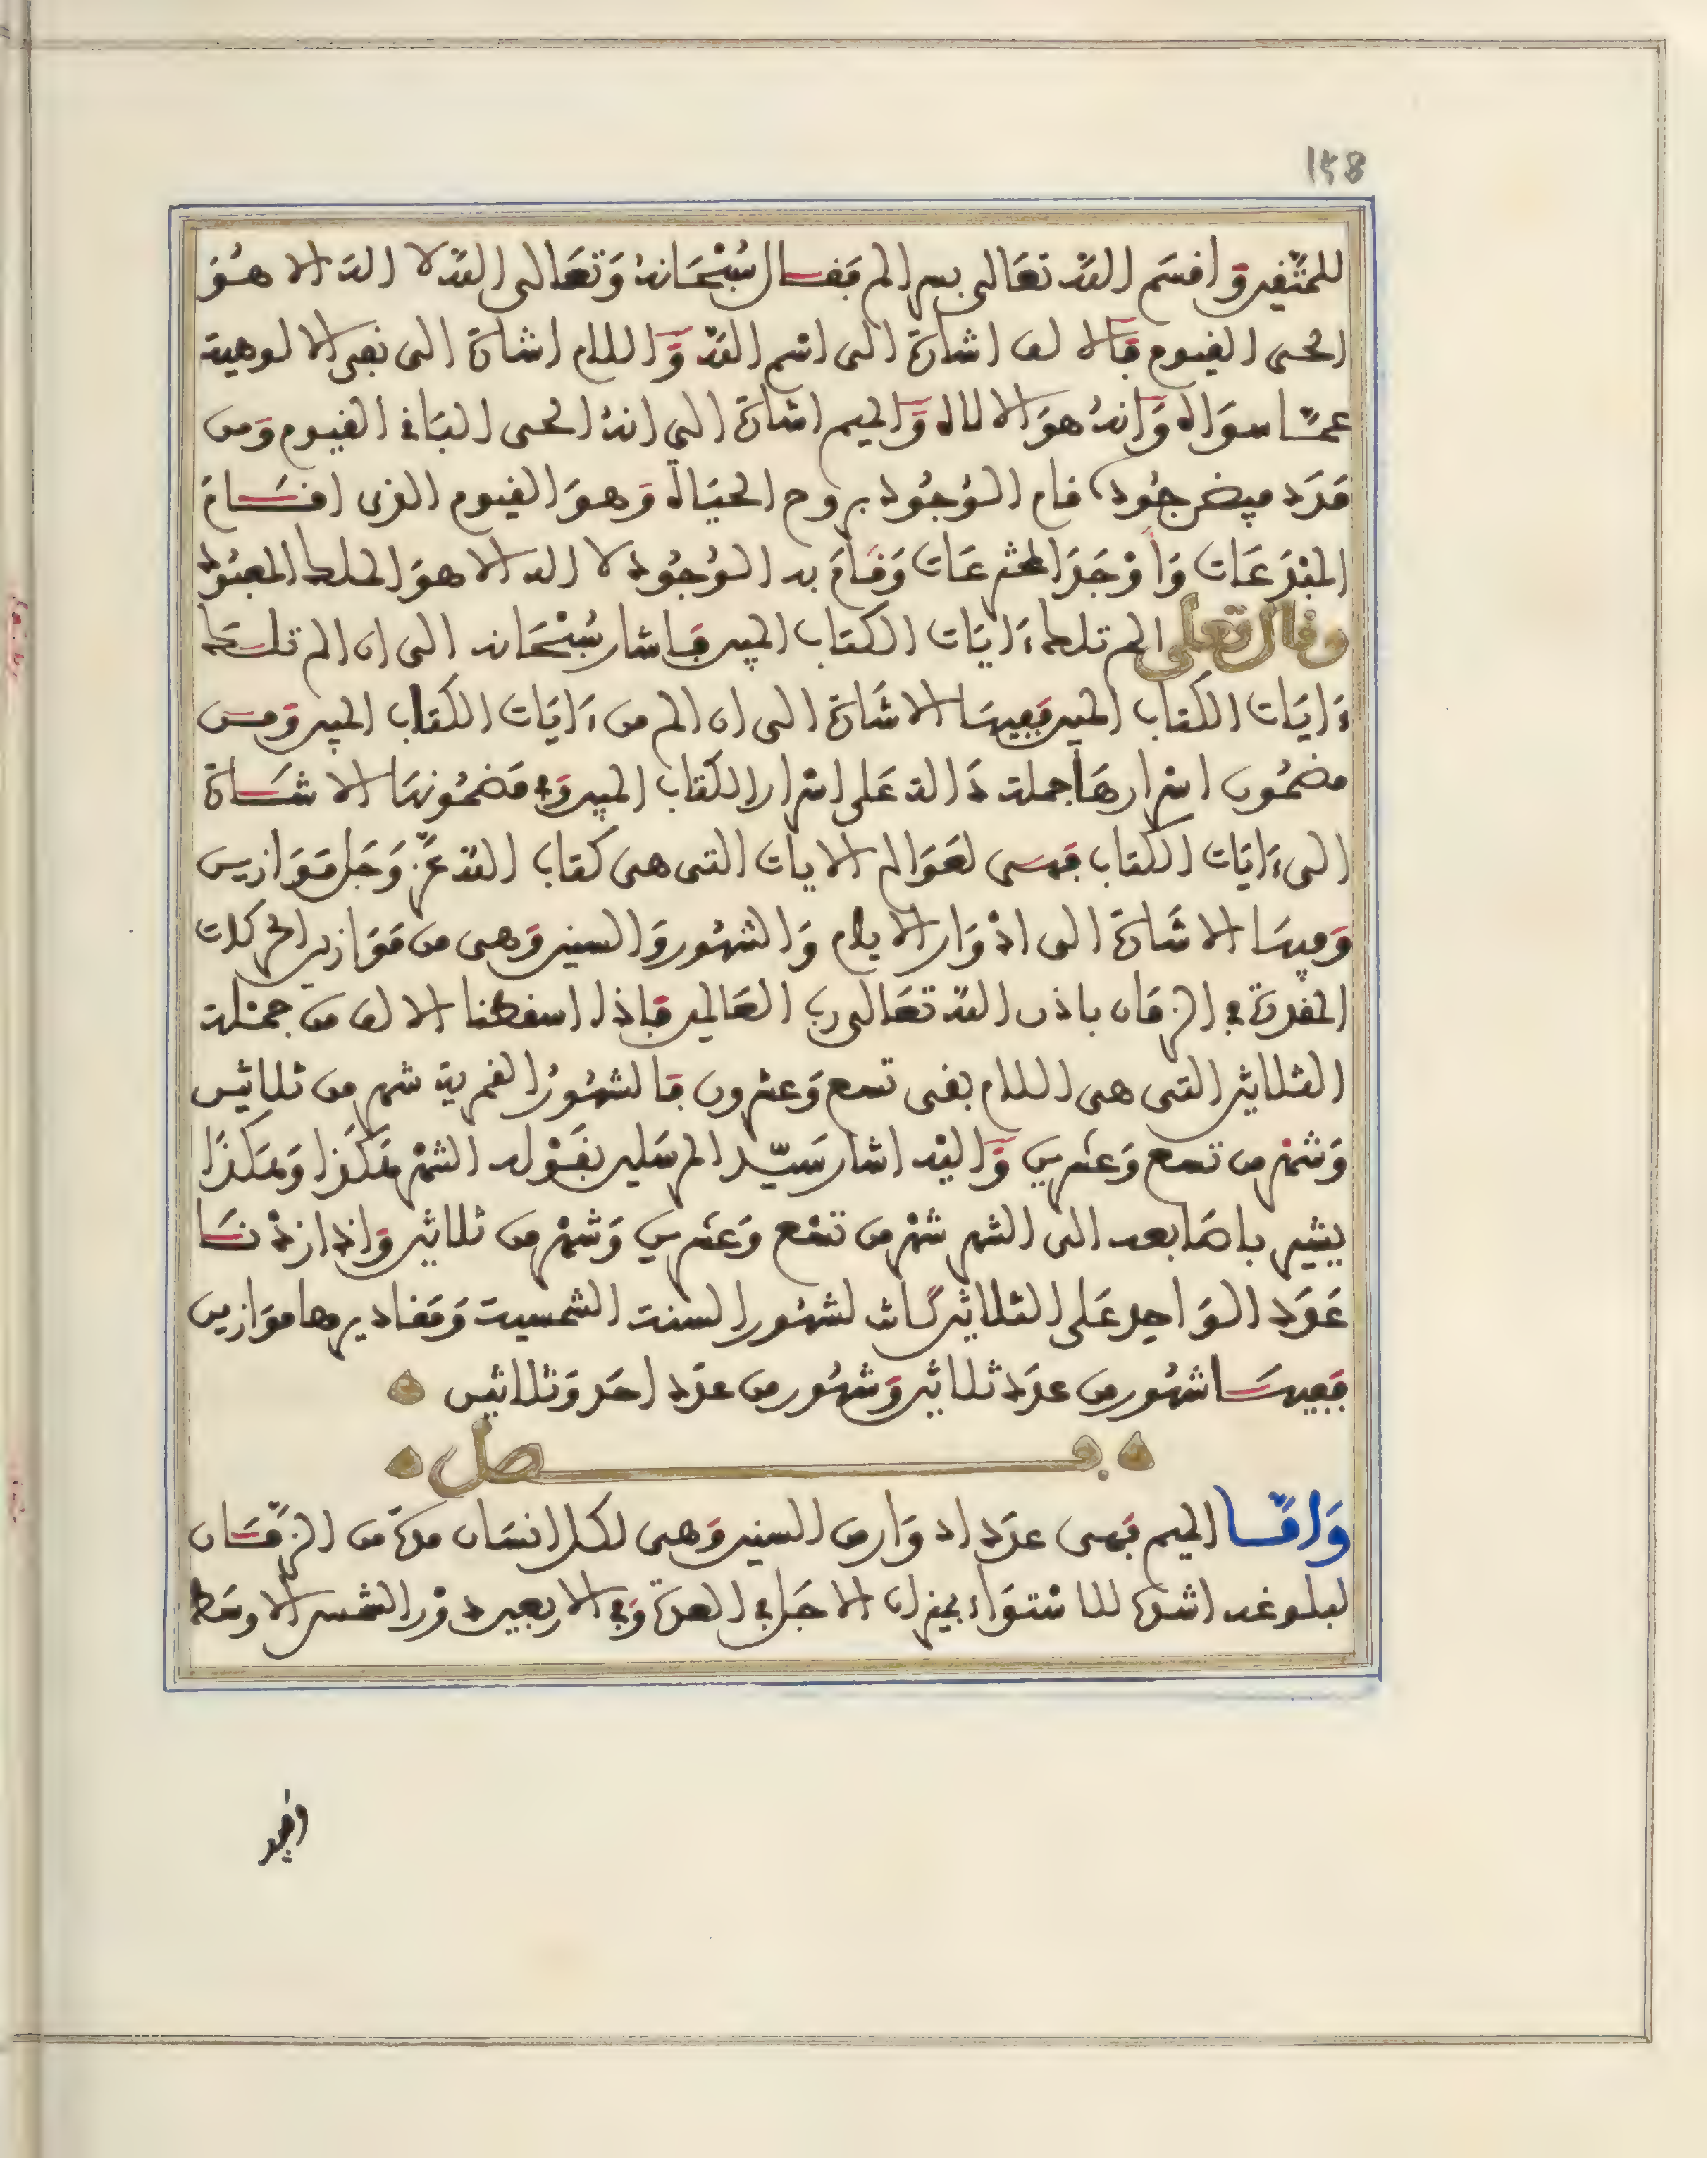 158
للمتقين وَاقسَم اللّه تعَالى بسر الم فقال سُبْحَانهُ وَتعَالى اللّه لا اله الا هُوَ
الحى القيوم فالالف اشارَة الى اسْم اللّه وَاللام اشارة الى نفي الالوهية
عمَّا سوَاه وَانهُ هوَ الا لاه وَالميم اشارَة الى انهُ الحى البَاقي القيوم وَمن
مَدَد فيض جُوده قام الوُجُود بروح الحيَاة وَهوَ القيوم الذى اقسَامَ
المبْدَعَات وَأوْجَدَ المخترعَات وَقَامَ به الوُجُود لا اله الا هوَ الملك المعبُود
وقال تعلى الم تلك ءَايَات الكتاب المبين فاشار سُبْحَانه الى ان الم تلك
ءَايَات الكتاب المبين ففيهَا الاشَارة الى ان الم من ءَايَات الكتاب المبين وَمن
مضمُون اسْرارهَا جملة دَالة عَلى اسْرار الكتاب المبين وَفي مَضمُونهَا الاشَارة
الى ءَايَات الكتاب فهى لعَوَالم الايات التى هى كتاب اللّه عَزَّ وَجَل مَوَازين
وَفيهَا الاشَارة الى ادْوَار الايام وَالشهُور وَالسنين وَهى من مَوَازين الحركات
المقدرة في الزمَان باذن اللّه تعَالى رب العَالمين فاذا اسقطنا الالف من جملة
الثلاثين التى هى اللام بقى تسع وَعشرون فالشهُورُ القمرية شهر من ثلاثين
وَشهْر من تسع وَعشرين وَاليْه اشار سَيّد المرسَلين بقوْله الشهْر هَكذا وَهَكذَا
يشير باصَابعه الى الشهر شهْر من تسْع وَعشرين وَشهْر من ثلاثين وَاذا زدْنَا
عَدَد الوَاحد عَلى الثلاثين كانت لشهُور السنة الشمسية وَمَقاديرها موَازين
ففيهَا شهُور من عدَد ثلاثين وَشهُور من عدَد احَد وَثلاثين
فصل
وَامَّا الميم فهى عدَد ادوَار من السنين وَهى لكل انسَان مدة من الزمَان
لبلوغه اشده للاسْتوَاء بميزان الاجَل في العدة وَفي الاربعين دوْر الشمس الاوسَط
وَفيه